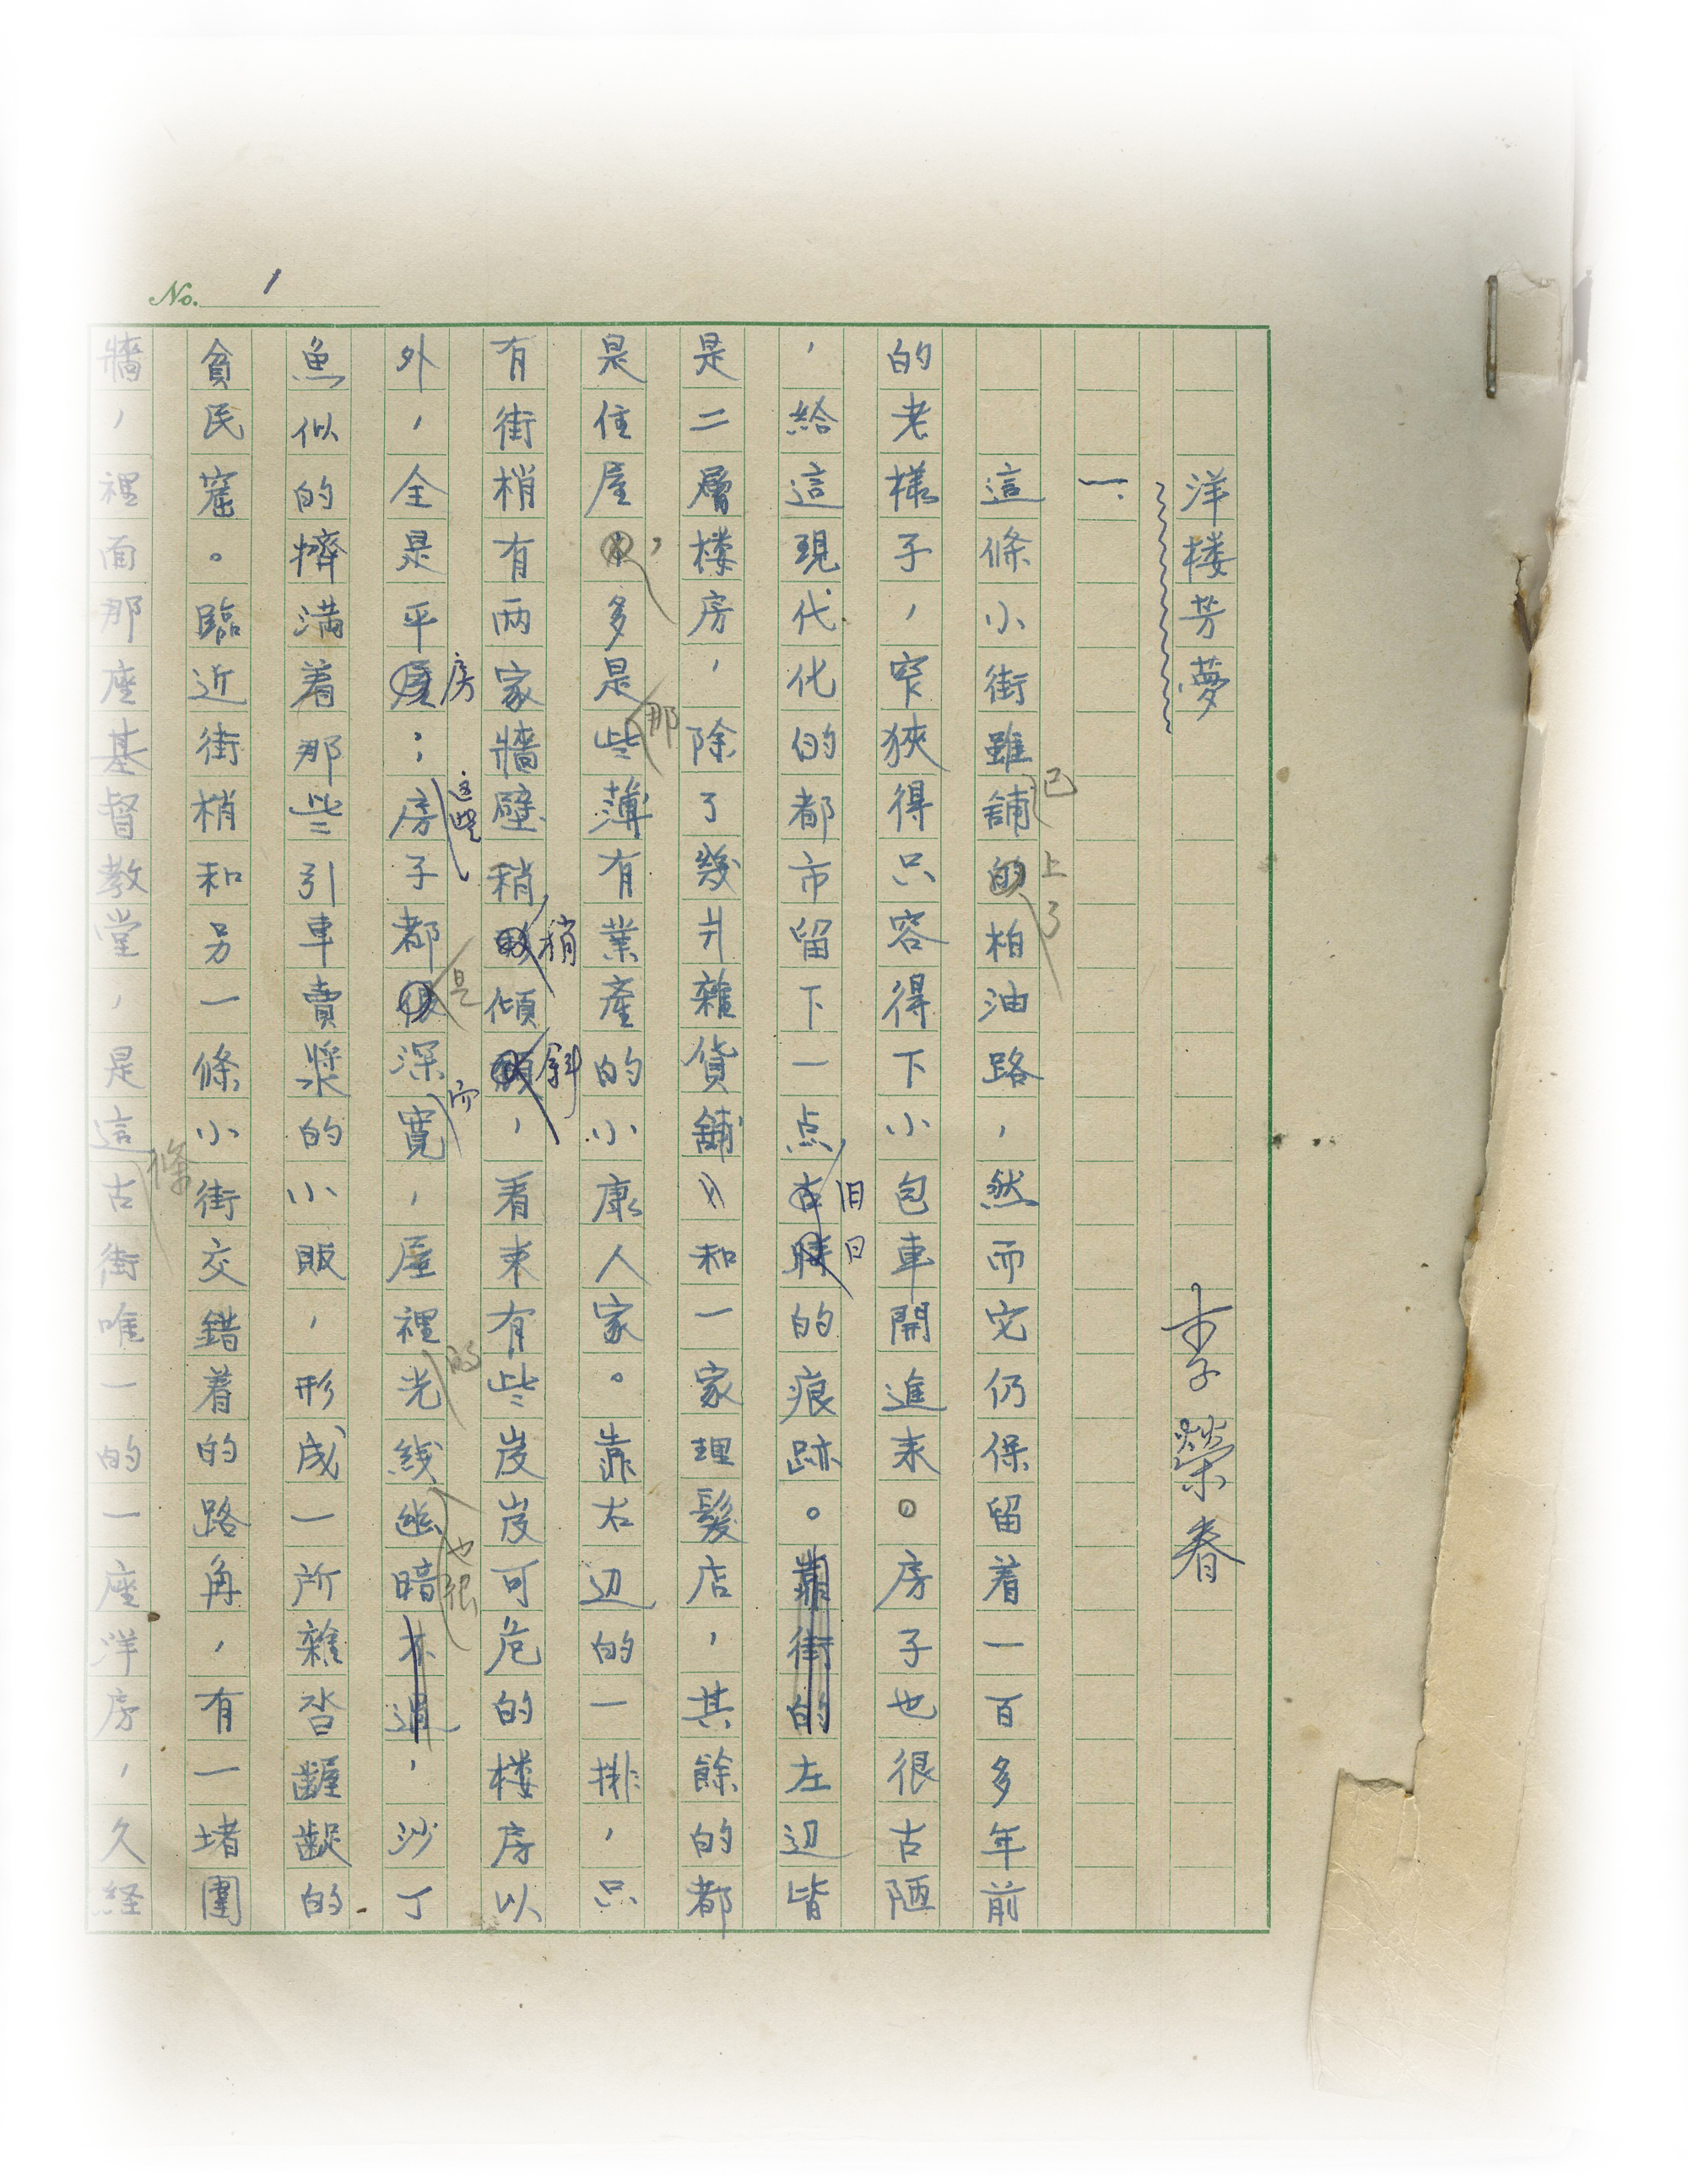 No. 1
洋楼芳夢 李榮春
一.
這條小街雖已舖上了柏油路，然而它仍保留着一百多年前
的老樣子，窄狹得只容得下小包車開進来。房子也很古陋
，給這現代化的都市留下一点旧日的痕跡。靠街的左辺皆
是二層楼房，除了幾爿雜貨舖和一家理髮店，其餘的都
是住屋，多是那些薄有業產的小康人家。靠右辺的一排，只
有街梢有兩家牆壁稍稍傾斜，看来有些岌岌可危的楼房以
外，全是平房；這些房子都是深而寬，屋裡的光線也很幽暗不過，沙丁
魚似的擠満着那些引車賣漿的小販，形成一所雜沓齷齪的
貧民窟。臨近街梢和另一條小街交錯着的路角，有一堵圍
牆，裡面那座基督教堂，是這條古街唯一的一座洋房，久経